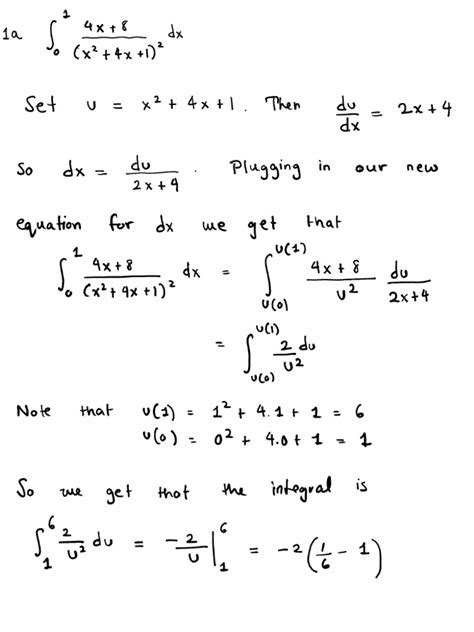 1a ∫₀¹ (4x + 8)/(x² + 4x + 1)² dx
Set u = x² + 4x + 1. Then du/dx = 2x + 4
So dx = du/(2x + 4). Plugging in our new
equation for dx we get that
∫₀¹ (4x + 8)/(x² + 4x + 1)² dx = ∫_{u(0)}^{u(1)} (4x + 8)/u² du/(2x + 4)
= ∫_{u(0)}^{u(1)} 2/u² du
Note that u(1) = 1² + 4.1 + 1 = 6
u(0) = 0² + 4.0 + 1 = 1
So we get that the integral is
∫₁⁶ 2/u² du = -2/u |₁⁶ = -2(1/6 - 1)